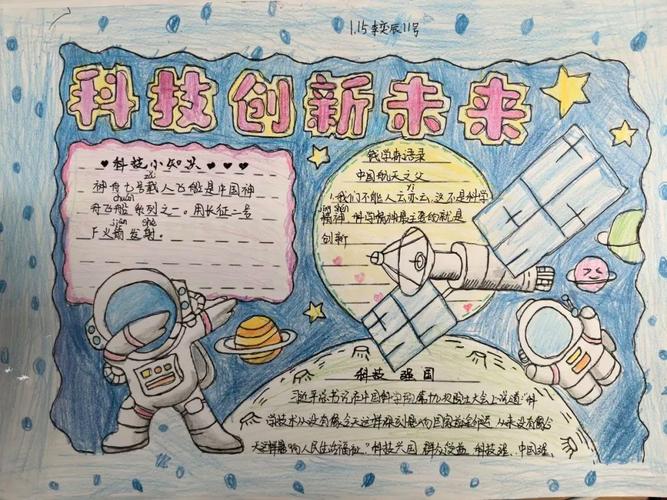 1.15李奕辰11号
科技创新未来
♥科技小知识♥♥♥
神舟七号载人飞船是中国神
舟飞船系列之一。用长征二号
F火箭发射。
钱学森语录
中国航天之父
我们不能人云亦云,这不是科学
精神,科学精神最主要的就是
创新
科技强国
习近平总书记在中国科学
学技术从没有像今天这样深刻影响国家前途命运,从来没有像今
天这样影响人民生活福祉。"科技兴国,科技强、中国强